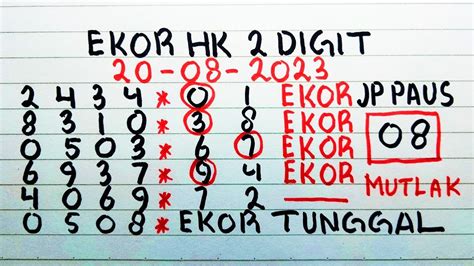 EKOR HK 2 DIGIT
20-08-2023
2 4 3 4 * 0 1 EKOR JP PAUS
8 3 1 0 * 3 8 EKOR 08
0 5 0 3 * 6 7 EKOR
6 9 3 7 * 9 4 EKOR MUTLAK
4 0 6 9 * 7 2 ——
0 5 0 8 * EKOR TUNGGAL